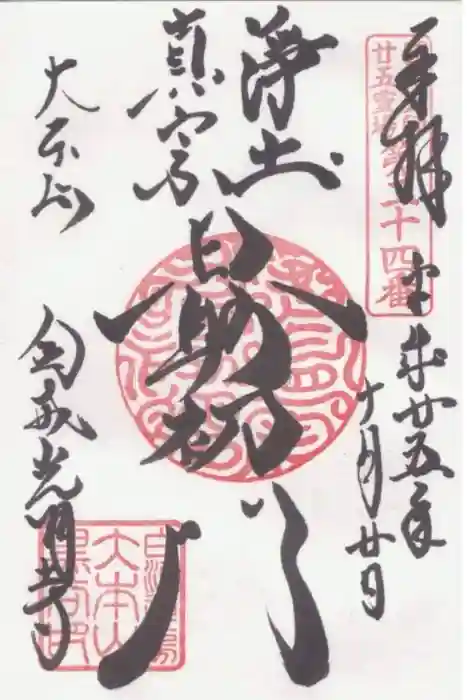 奉拝 平成廿五年
十月廿日
廿五霊場
第二十四番
浄土
真宗
最初門
大本山
金戒光明寺
大本山